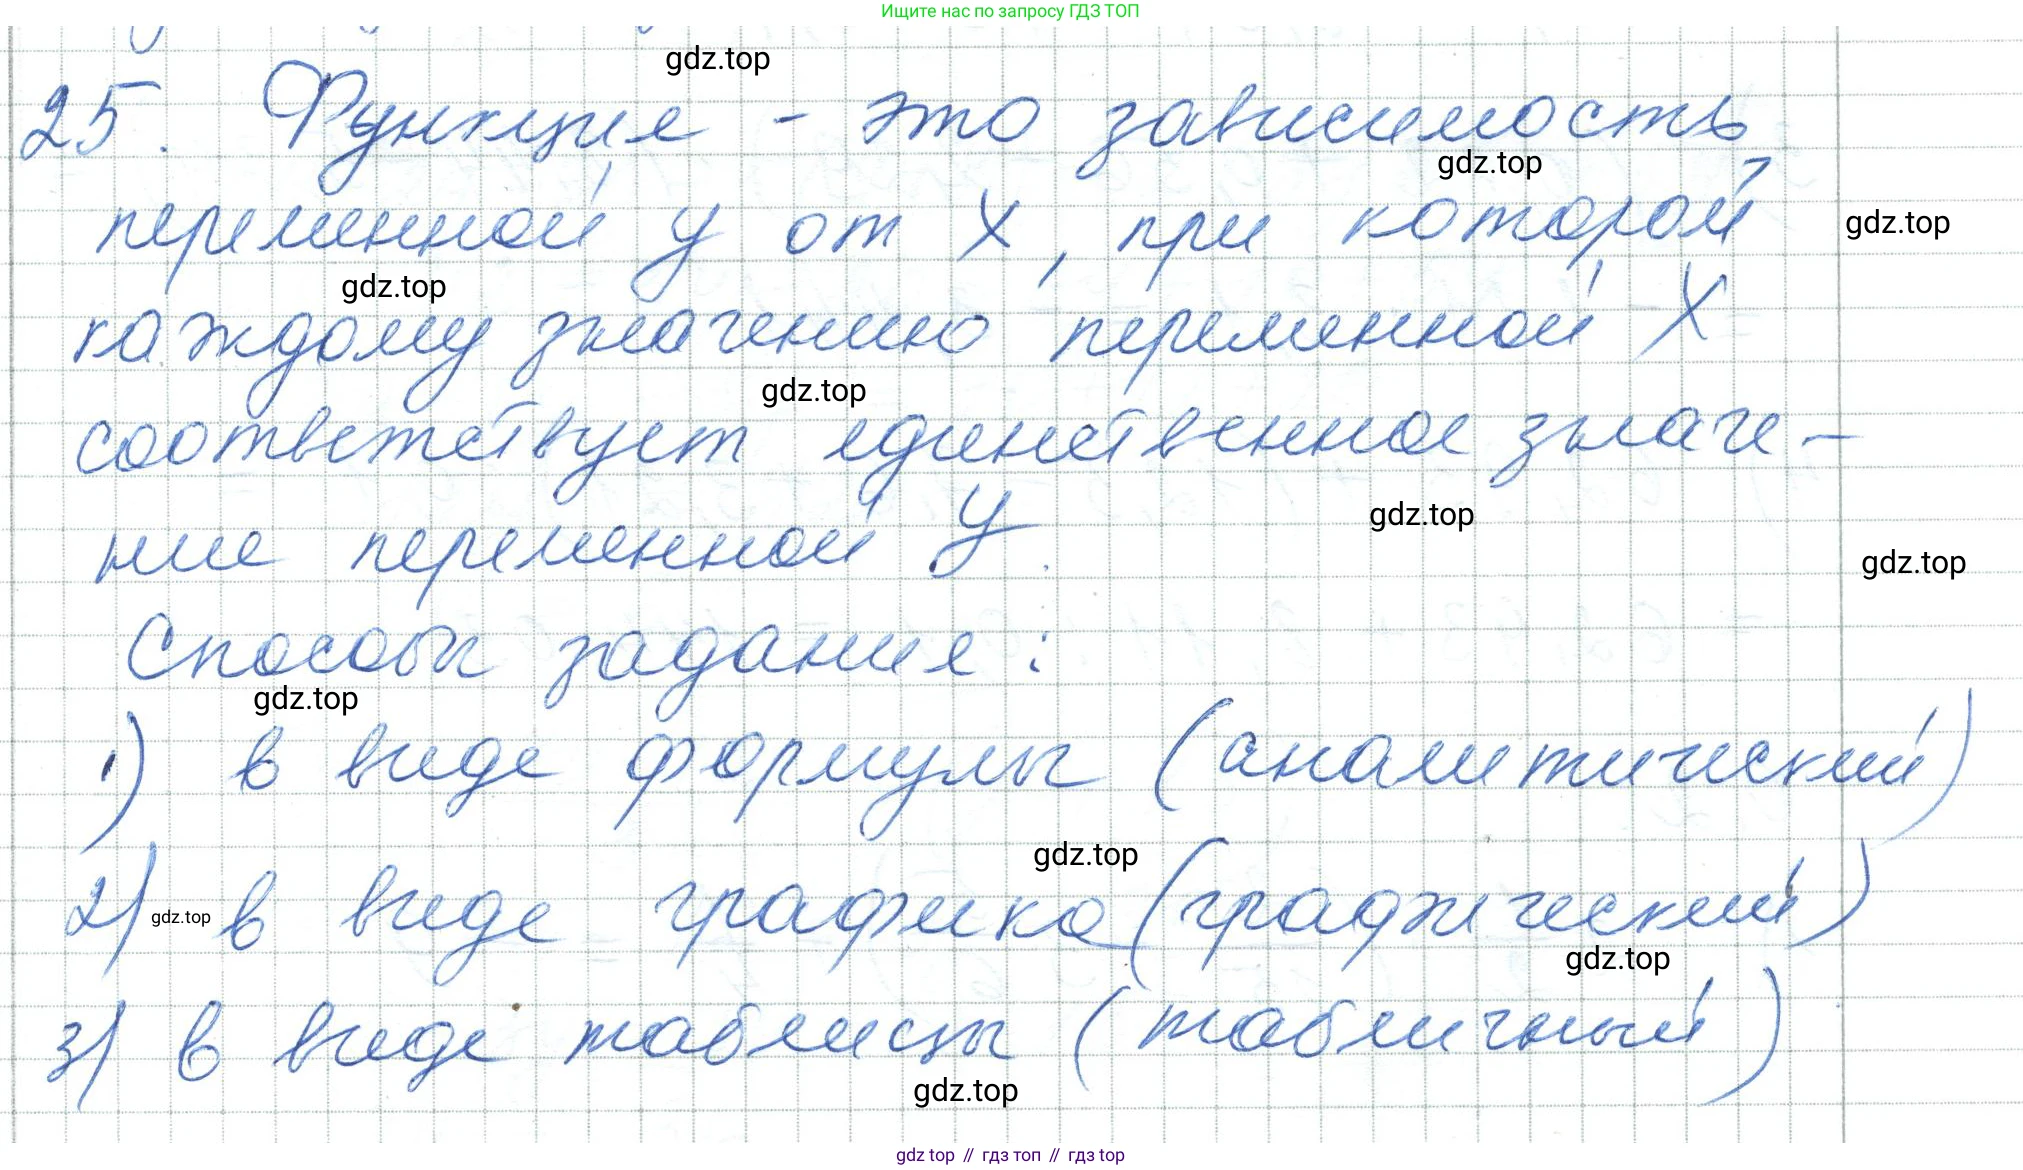 Ищите нас по запросу ГДЗ ТОП
gdz.top
25. Функция - это зависимость
gdz.top
переменной у от х, при которой
gdz.top
gdz.top
каждому значению переменной х
gdz.top
соответствует единственное значе-
gdz.top
ние переменной у.
gdz.top
Способы задания:
gdz.top
1) в виде формулы (аналитический)
gdz.top
2) в виде графика (графический)
gdz.top
gdz.top
3) в виде таблицы (табличный)
gdz.top
gdz top // гдз топ // гдз top